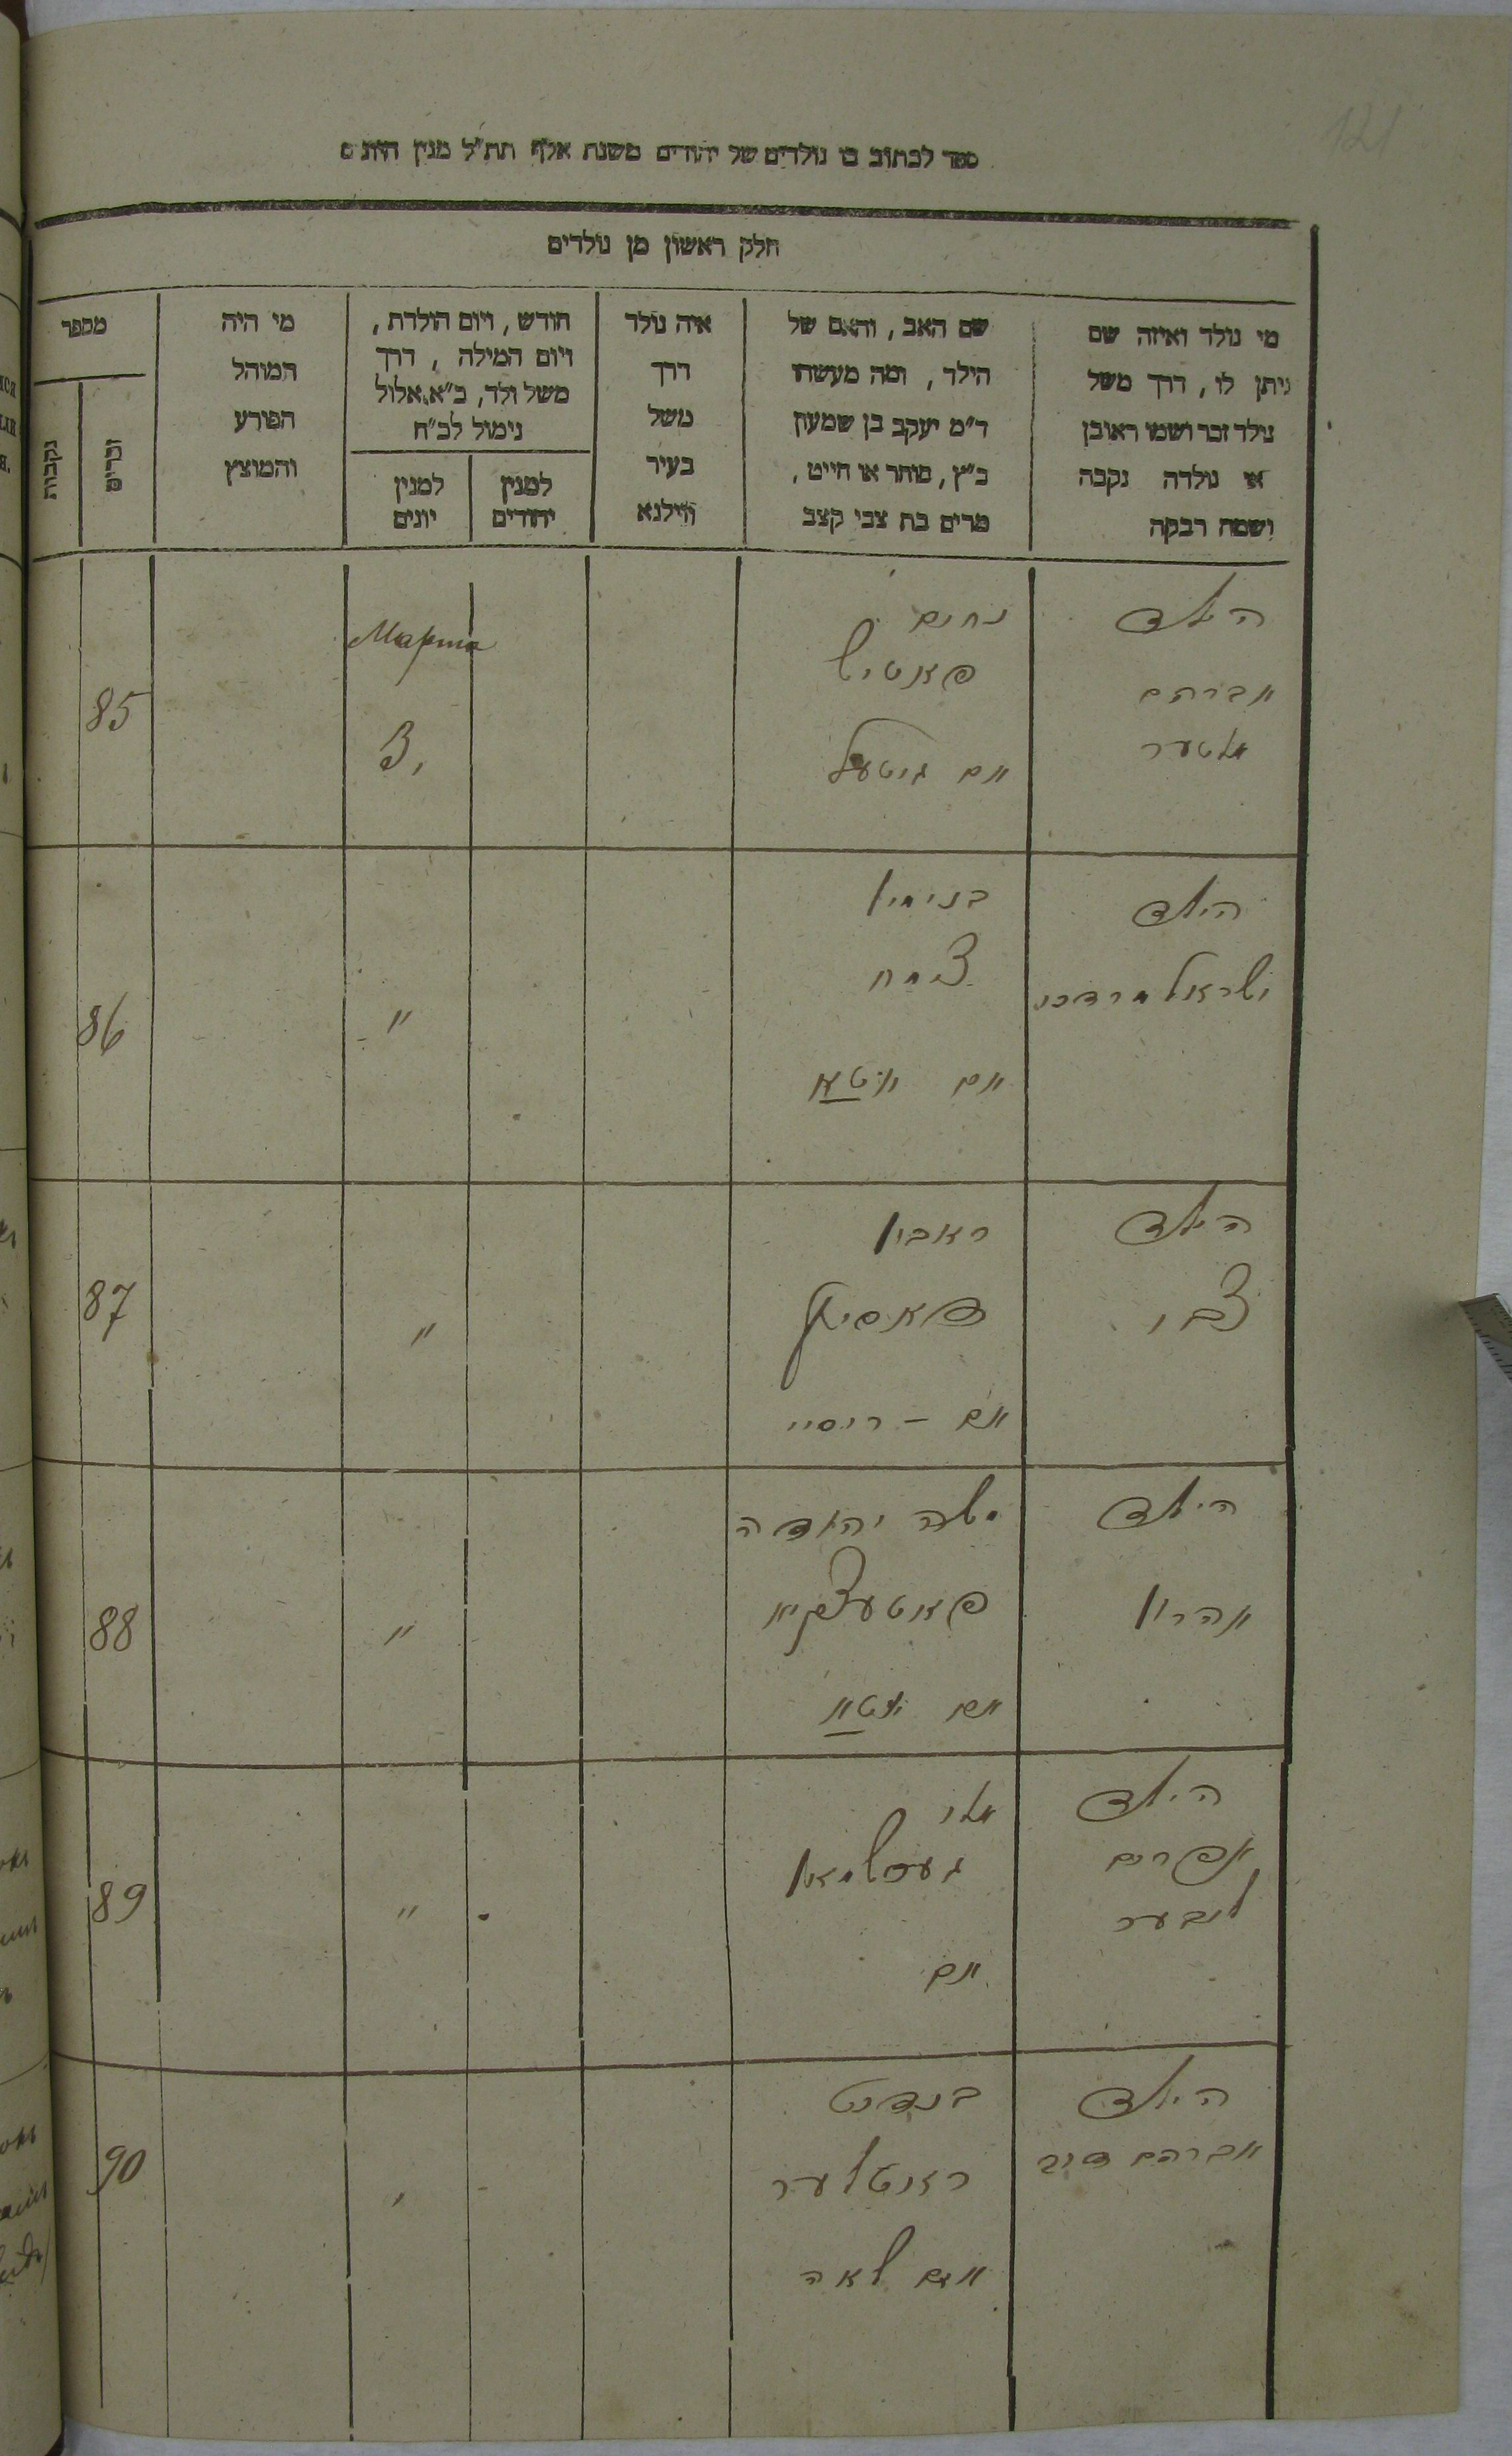 121
ספר לכתוב בו נולדים של יהודים משנת אלף תת״ל מנין היונים
חלק ראשון מן נולדים
מי נולד ואיזה שם
ניתן לו, דרך משל
נולד זכר ושמו ראובן
או נולדה נקבה
ושמה רבקה
שם האב, והאם של
הילד, ומה מעשהו
ד״מ יעקב בן שמעון
כ״ץ, סוחר או חייט,
מרים בת צבי קצב
איה נולד
דרך
משל
בעיר
ווילנא
חודש, ויום הולדת,
ויום המילה, דרך
משל ולד, כ״א אלול
נימול לכ״ח
למנין
יהודים
למנין
יונים
מי היה
המוהל
הפורע
והמוצץ
מספר
זכרים
נקבות
הילד
אברהם
אלטער
נחום
פאטיל
אם גיטעל
Марта
3,
85
הילד
ישראל מרדכי
בנימין
צמח
אם איטא
"
86
הילד
צבי
ראובין
אם –
"
87
הילד
אהרון
משה יהודה
אם
"
88
הילד
אפרים
ליבער
אלי
אם
"
89
הילד
אברהם
בנדיט
אם לאה
90